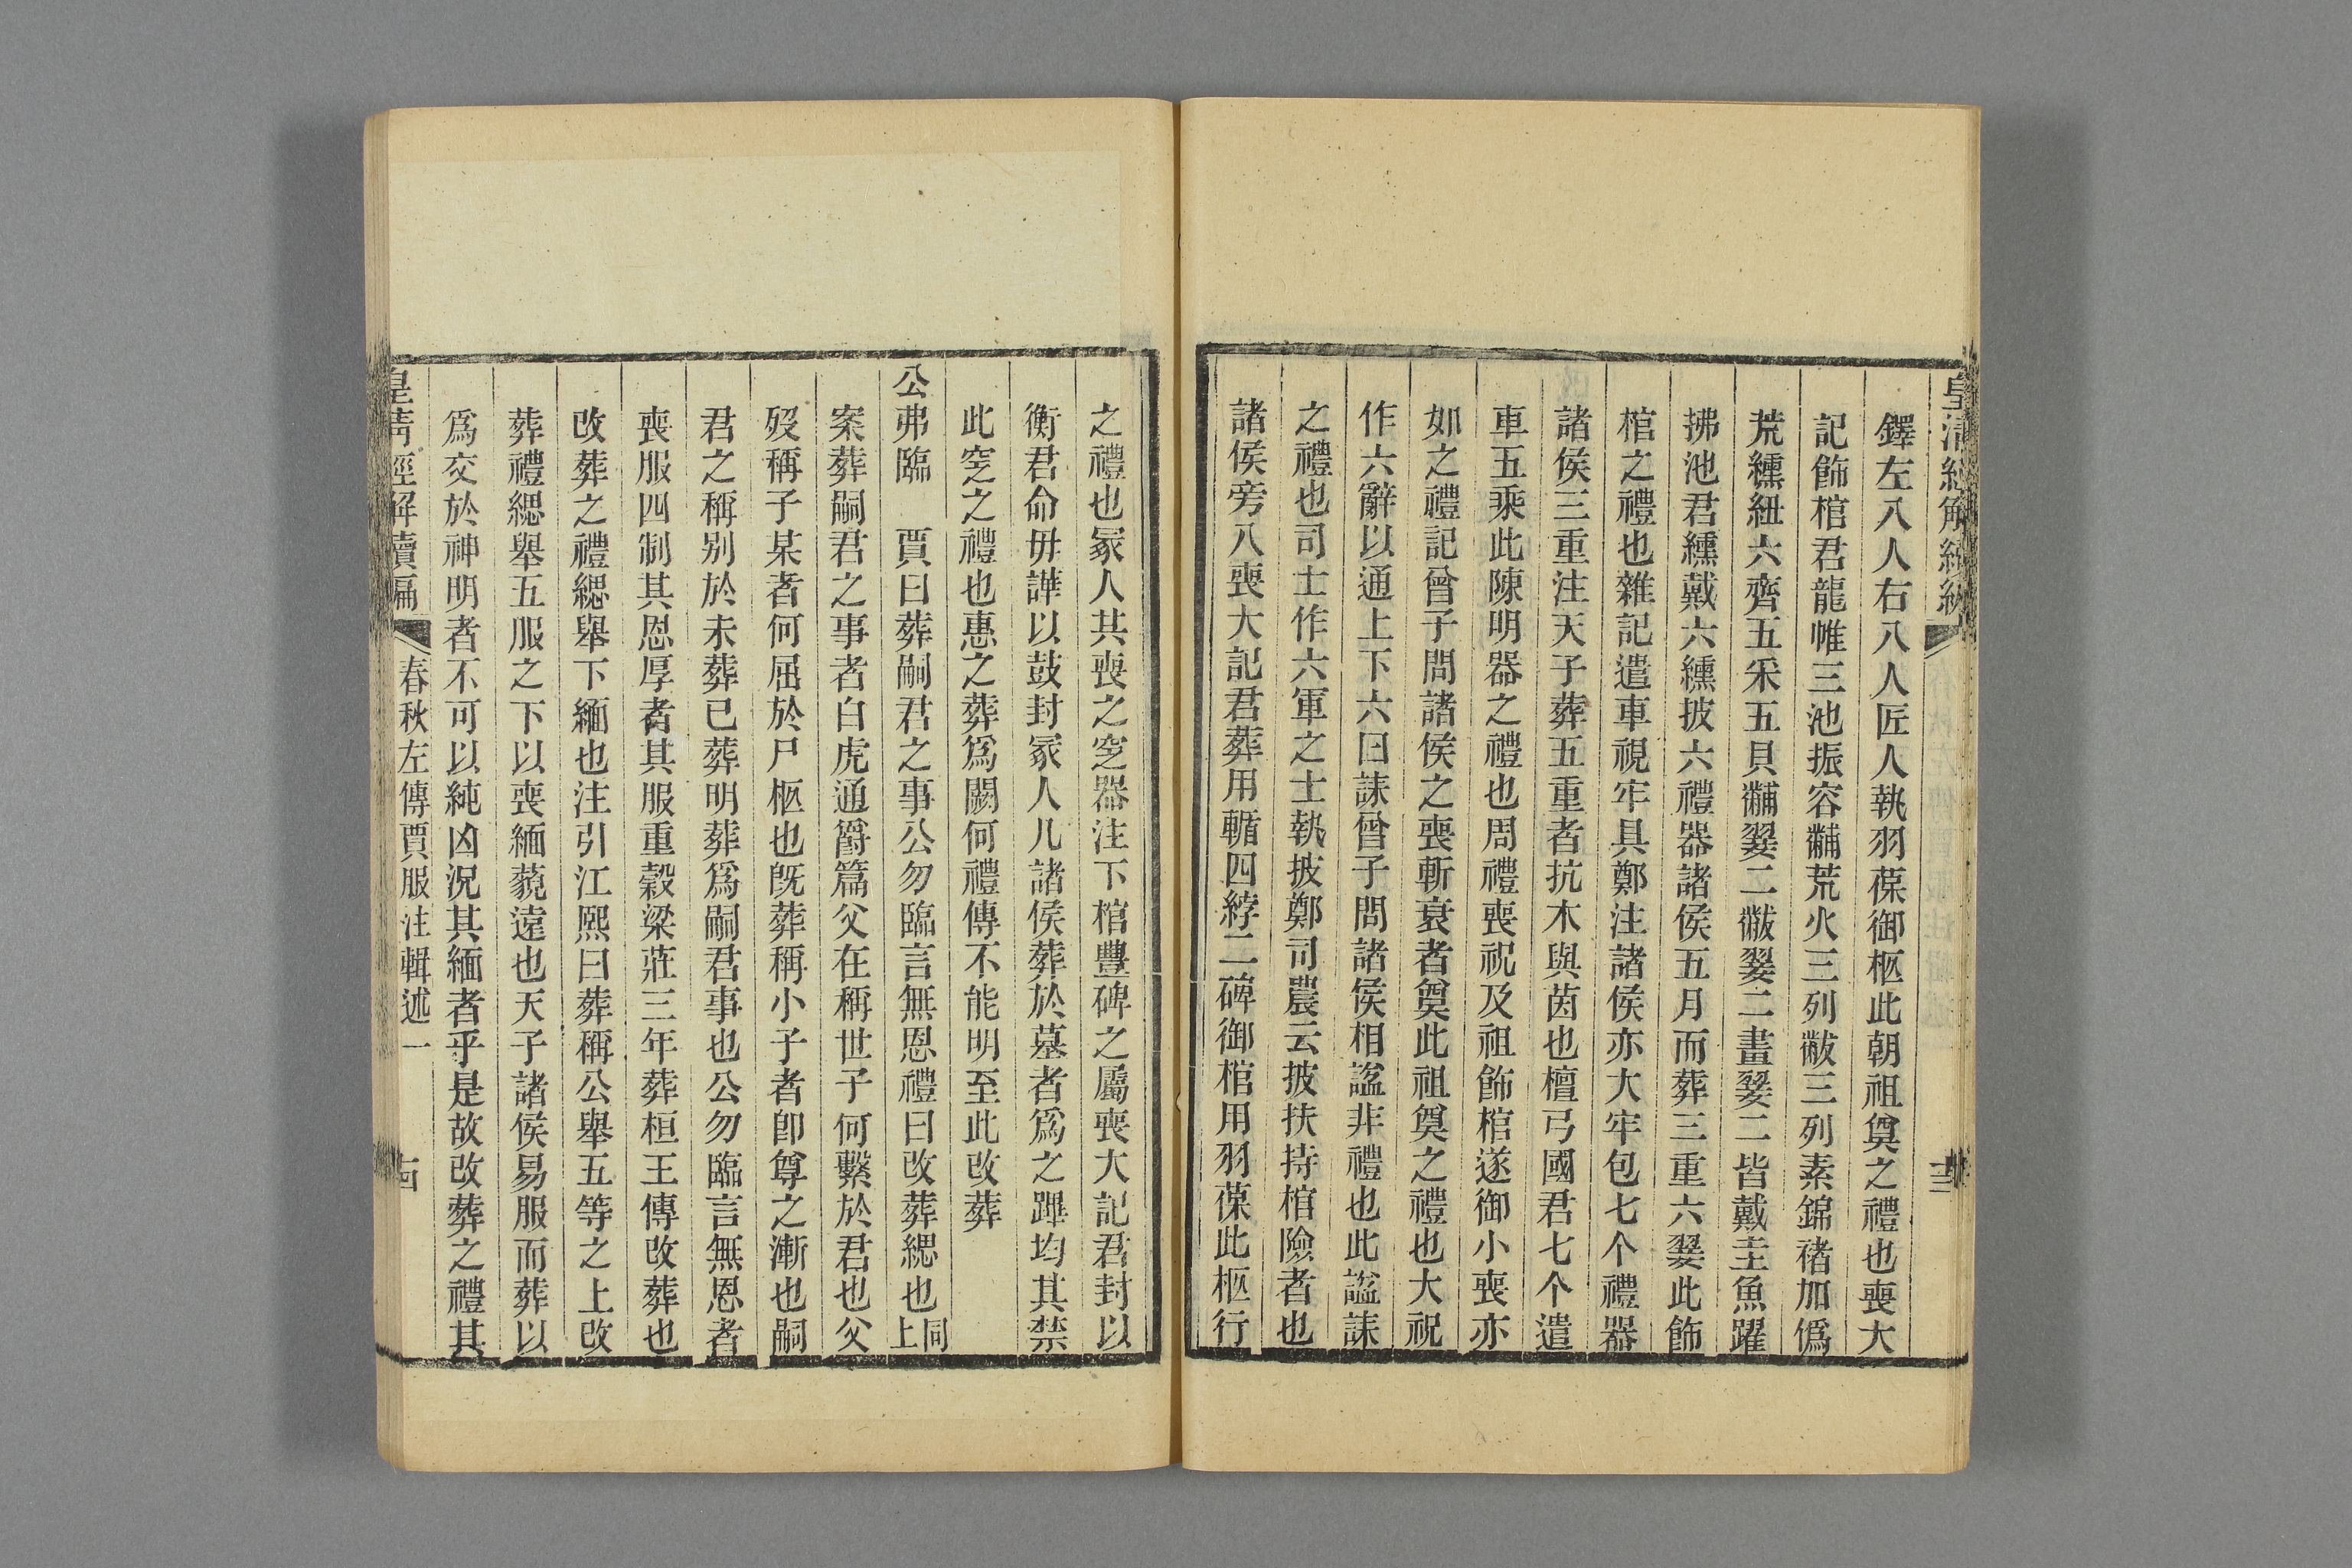 皇清經解續編
鐸左八人右八人匠人執羽葆御柩此朝祖奠之禮也喪大
記飾棺君龍帷三池振容黼荒火三列黻三列素錦褚加僞
荒纁紐六齊五采五貝黼翣二黻翣二畫翣二皆戴圭魚躍
拂池君纁戴六纁披六禮器諸侯五月而葬三重六翣此飾
棺之禮也雜記遣車視牢具鄭注諸侯亦大牢包七个禮器
諸侯三重注天子葬五重者抗木與茵也檀弓國君七个遣
車五乘此陳明器之禮也周禮喪祝及祖飾棺遂御小喪亦
如之禮記曾子問諸侯之喪斬衰者奠此祖奠之禮也大祝
作六辭以通上下六曰誄曾子問諸侯相誄非禮也此諡誄
之禮也司士作六軍之士執披鄭司農云披扶持棺險者也
諸侯旁八喪大記君葬用輴四綍二碑御棺用羽葆此柩行
之禮也冢人共喪之窆器注下棺豐碑之屬喪大記君封以
衡君命毋譁以鼓封冢人凡諸侯葬於墓者爲之蹕均其禁
此窆之禮也惠之葬爲闕何禮傳不能明至此改葬
公弗臨　賈曰葬嗣君之事公勿臨言無恩禮曰改葬緦也同上
案葬嗣君之事者白虎通爵篇父在稱世子何繫於君也父
歿稱子某者何屈於尸柩也既葬稱小子者卽尊之漸也嗣
君之稱别於未葬已葬明葬爲嗣君事也公勿臨言無恩者
喪服四制其恩厚者其服重榖梁莊三年葬桓王傳改葬也
改葬之禮緦舉下緬也注引江熙曰葬稱公舉五等之上改
葬禮緦舉五服之下以喪緬藐遠也天子諸侯易服而葬以
爲交於神明者不可以純凶況其緬者乎是故改葬之禮其
皇清經解續編　春秋左傳賈服注輯述一　十四